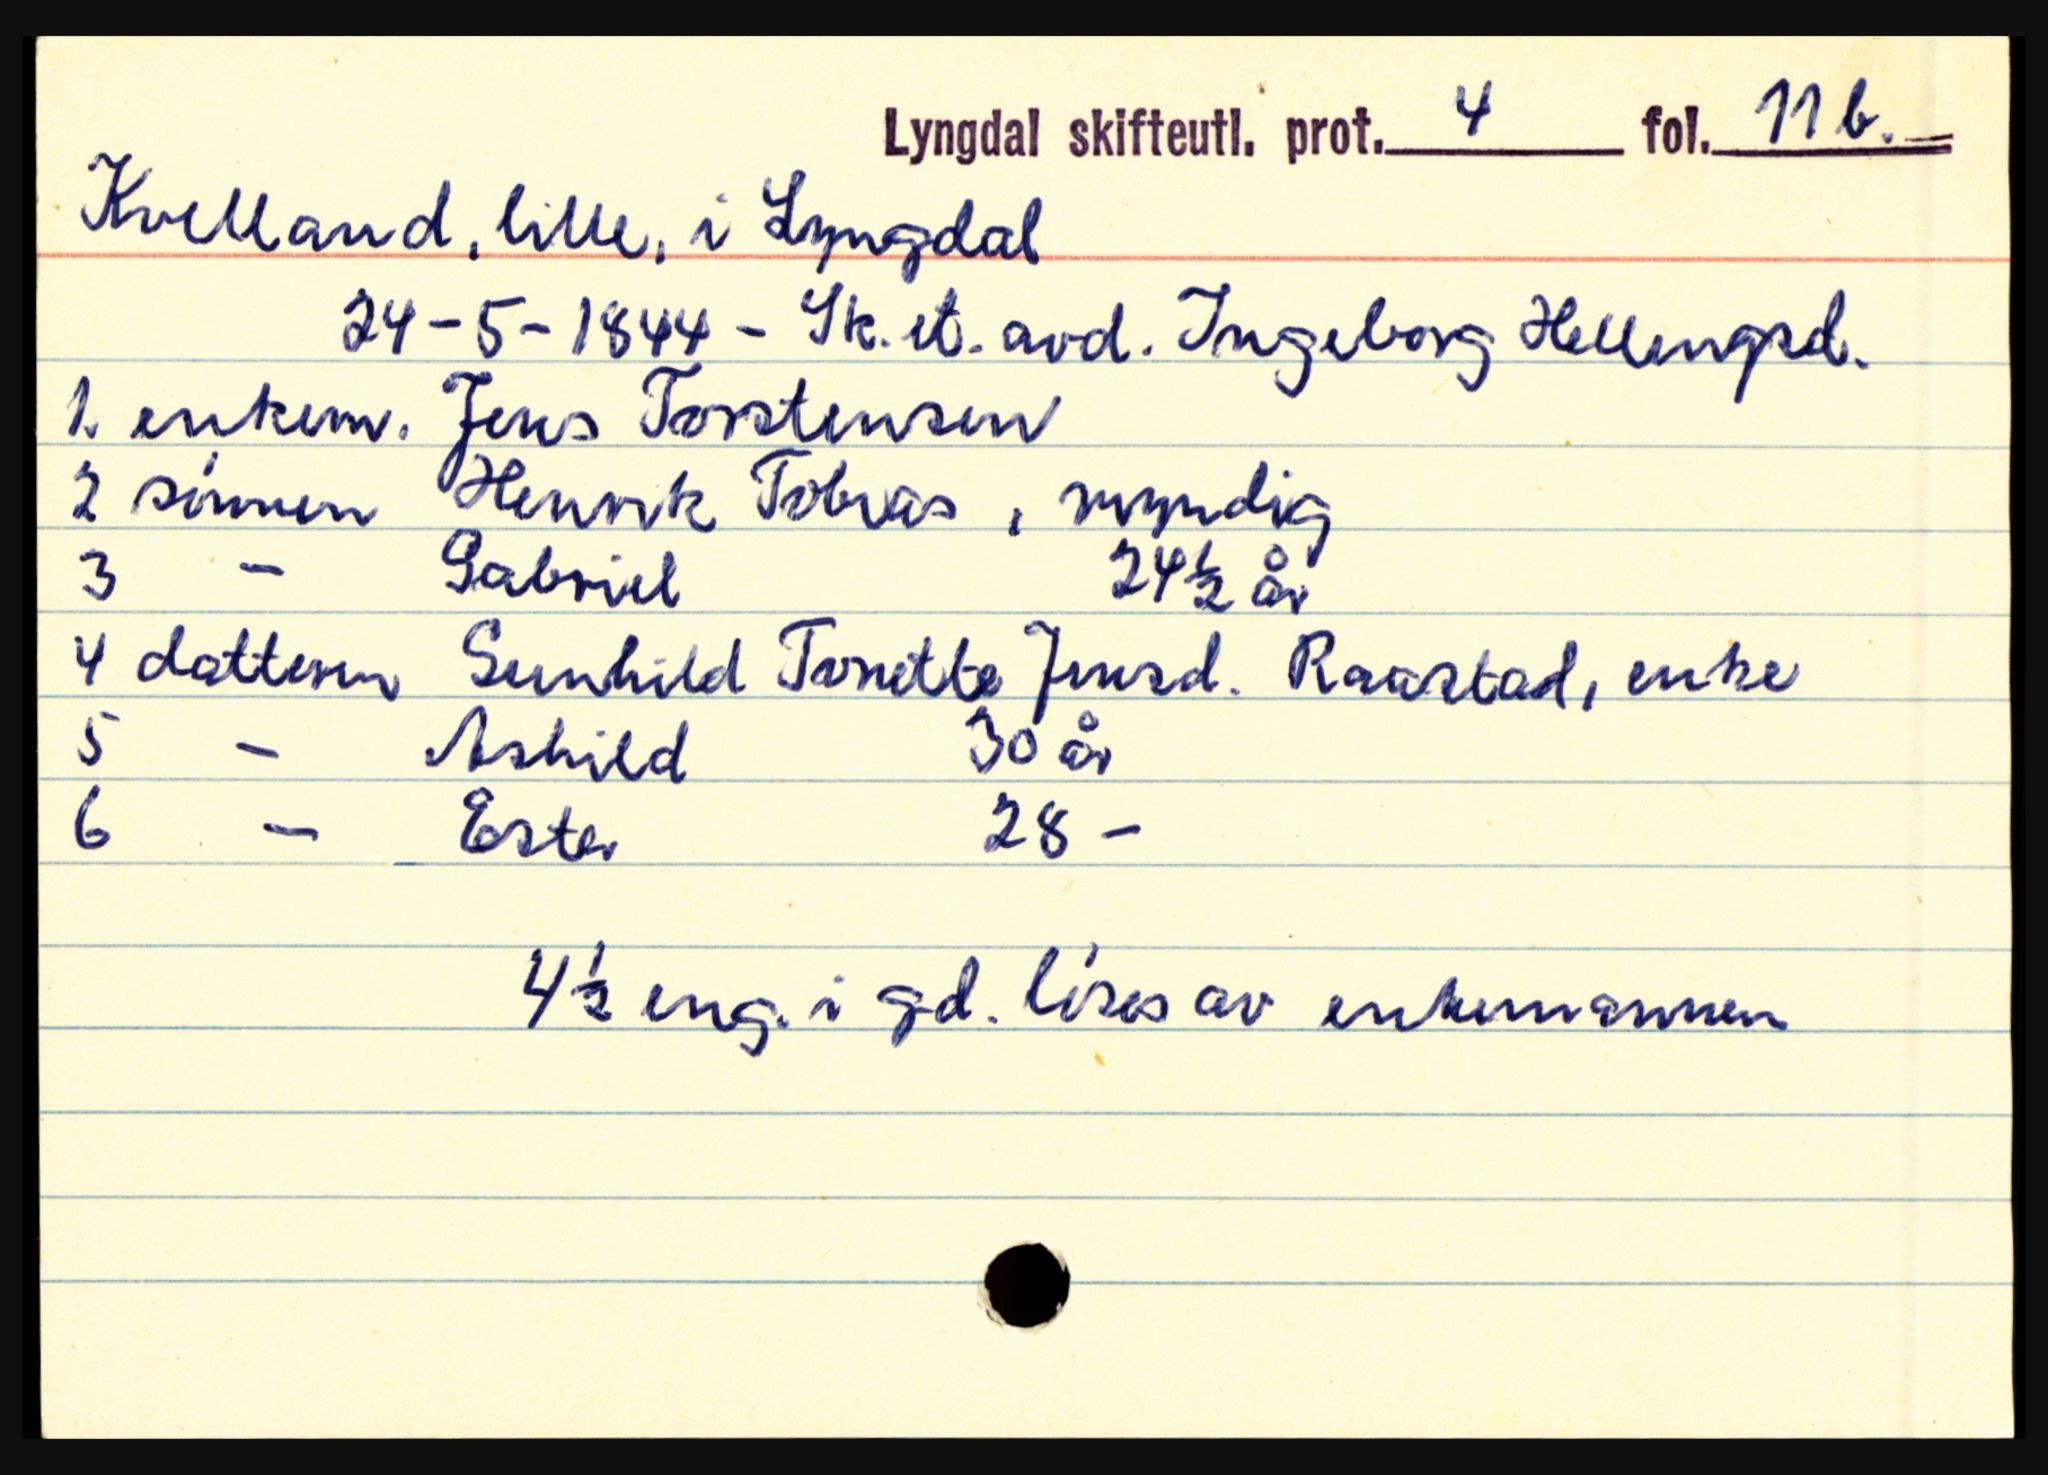 Lyngdal skifteutl. prot. 4 fol. 11 b.
Kvelland, lille, i Lyngdal
24-5-1844 - Sk. et. avd. Ingeborg Hellengsd.
1. enkem. Jens Torstensen
2 sónnen Henrik Tobias, myndig
3 - Gabriel 24 1/2 år
4 datteren Gunhild Tonette Jensd. Raastad, enke
5 - Ashild 30 år
6 - Ester 28 -
4 1/2 eng. i gd. lóses av enkemannen